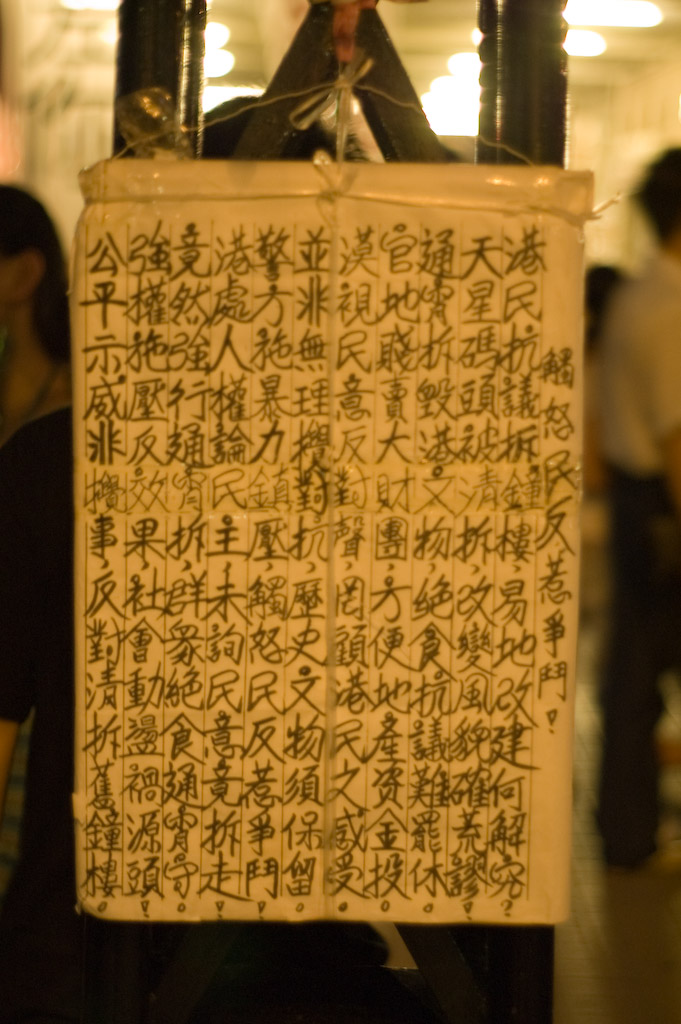 觸怒民反惹爭鬥！
港民抗議拆鐘樓，易地改建何解究？
天星碼頭被清拆，改變風貌確荒謬！
通宵拆毀港文物，絕食抗議難罷休。
官地賤賣大財團，方便地產资金投。
漠視民意反對聲，罔顧港民之感受。
並非無理攪對抗，歷史文物須保留。
警方施暴力鎮壓，觸怒民反惹爭鬥！
港處人權論民主，未詢民意竟拆走！
竟然強行通宵拆，群眾絕食通宵守。
強權施壓反效果，社會動盪禍源頭！
公平示威非攪事，反對清拆舊鐘樓。